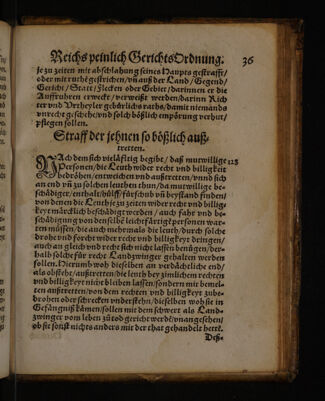 Reichs peinlich GerichtsOrdnung. 36
je zu zeiten mit abschlahung seines Haupts gestrafft/
oder mit ruthē gestrichen/ vñ auß der Land/ Gegend/
Gericht/ Statt/ Flecken oder Gebiet/ darinnen er die
Auffruhren erweckt/ verweißt werden/ darinn Rich
ter vnd Vrtheyler gebürlichs raths/ damit niemands
vnrecht geschehe/ vnd solch bößlich empörung verhut/
pflegen sollen.
Straff der jehnen so bößlich auß-
tretten.
NAch dem sich vielfältig begibt/ daß mutwillige 128
Personen/ die Leuth wider recht vnd billigkeit
bedröhen/ entweichen vnd außtretten/ vnnd sich
an end vñ zu solchen leuthen thun/ da mutwillige be-
schädiger/ enthalt/ hülff/ fürschub vñ beystand finden/
von denen die Leuth je zu zeiten wider recht vnd billig-
key t märcklich beschädiget werden/ auch fahr vnd be-
schädigung von solche leichtfärtige personen war-
ten müssen/ die auch mehrmals die leuth/ durch solche
drohe vnd forcht wider recht vnd billigkeyt dringen/
auch an gleich vnd recht sich nicht lassen benügen/ der-
halb solche für recht Landzwinger gehalten werden
sollen. Hierumb wo dieselben an verdächtliche end/
als obstehe/ außtretten/ die leuth bey zimlichem rechten
vnd billigkeyt nicht bleiben lassen/ sondern mit bemel-
ten außtretten/ von dem rechten vnd billigkeyt zube-
drohen oder schrecken vnderstehn/ dieselben wo sie in
Gefängnuß kämen/ sollen mit dem schwert als Land-
zwinger vom leben zū tod gericht werdē/ vnangesehen/
ob sie sonst nichts anders mit der that gehandelt hett.
Deß-